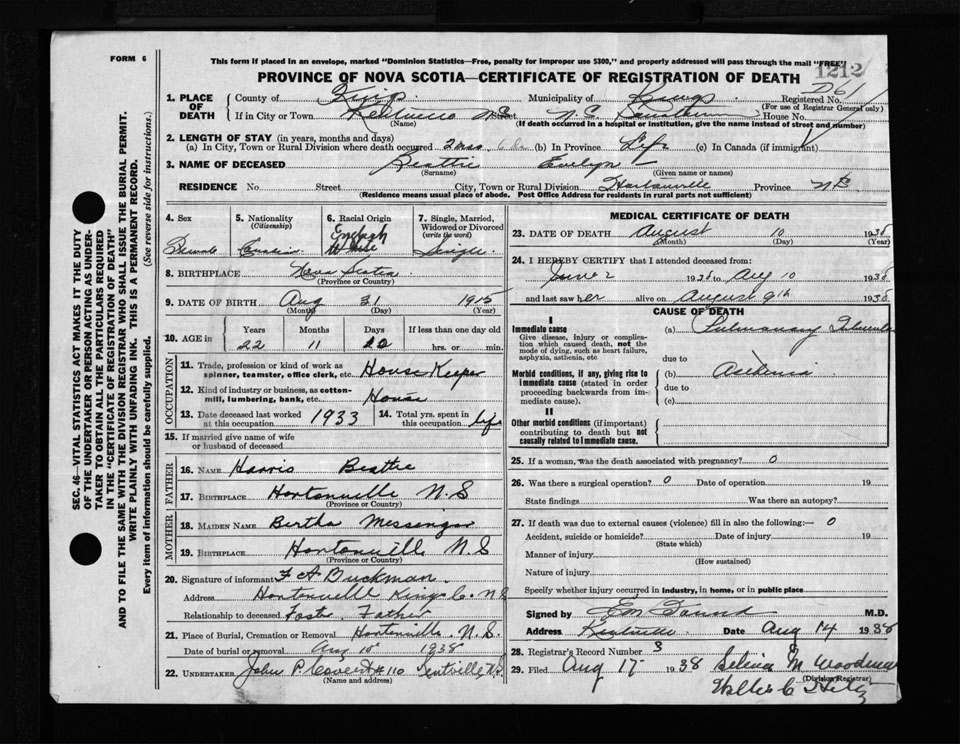 FORM 6
This form if placed in an envelope, marked "Dominion Statistics—Free, penalty for improper use $300," and properly addressed will pass through the mail "FREE"
1212
PROVINCE OF NOVA SCOTIA—CERTIFICATE OF REGISTRATION OF DEATH
D61
1. PLACE OF DEATH
County of Kings Municipality of Kings Registered No.
(For use of Registrar General only)
If in City or Town Street N.S. House No.
(Name) (If death occurred in a hospital or institution, give the name instead of street and number)
2. LENGTH OF STAY (in years, months and days)
(a) In City, Town or Rural Division where death occurred 2 mos. (b) In Province Life (c) In Canada (if immigrant)
3. NAME OF DECEASED Beattie Evelyn
(Surname) (Given name or names)
RESIDENCE No. Street City, Town or Rural Division Hortonville Province N.S.
(Residence means usual place of abode. Post Office Address for residents in rural parts not sufficient)
SEC. 46—VITAL STATISTICS ACT MAKES IT THE DUTY
OF THE UNDERTAKER OR PERSON ACTING AS UNDER-
TAKER TO OBTAIN ALL THE PARTICULARS REQUIRED
IN THE "CERTIFICATE OF REGISTRATION OF DEATH"
AND TO FILE THE SAME WITH THE DIVISION REGISTRAR WHO SHALL ISSUE THE BURIAL PERMIT.
WRITE PLAINLY WITH UNFADING INK. THIS IS A PERMANENT RECORD.
Every item of information should be carefully supplied. (See reverse side for instructions.)
4. Sex 5. Nationality (Citizenship) 6. Racial Origin 7. Single, Married, Widowed or Divorced (write the word)
Female Canadian English White Single
8. BIRTHPLACE Nova Scotia
(Province or Country)
9. DATE OF BIRTH Aug 31 1915
(Month) (Day) (Year)
10. AGE in Years Months Days If less than one day old
22 11 hrs. or min.
OCCUPATION
11. Trade, profession or kind of work as spinner, teamster, office clerk, etc. House Keeper
12. Kind of industry or business, as cotton-mill, lumbering, bank, etc. House
13. Date deceased last worked at this occupation 1933 14. Total yrs. spent in this occupation Life
15. If married give name of wife or husband of deceased
FATHER
16. NAME Harris Beattie
17. BIRTHPLACE Hortonville N.S
(Province or Country)
MOTHER
18. MAIDEN NAME Bertha Messenger
19. BIRTHPLACE Hortonville N.S
(Province or Country)
20. Signature of informant F A Buckman
Address Hortonville Kings Co. N S
Relationship to deceased Foster Father
21. Place of Burial, Cremation or Removal Hortonville. N.S.
Date of burial or removal Aug 1938
22. UNDERTAKER John P. #110 N.S.
(Name and address)
MEDICAL CERTIFICATE OF DEATH
23. DATE OF DEATH August 10 1938
(Month) (Day) (Year)
24. I HEREBY CERTIFY that I attended deceased from:
June 2 1938 to Aug 10 1938
and last saw her alive on August 9th 1938
CAUSE OF DEATH
I
Immediate cause (a) Pulmonary
Give disease, injury or complication which caused death, not the mode of dying, such as heart failure, asphyxia, asthenia, etc
due to
Morbid conditions, if any, giving rise to immediate cause (stated in order proceeding backwards from immediate cause). (b) Asthenia
due to
(c)
II
Other morbid conditions (if important) contributing to death but not causally related to immediate cause.
25. If a woman, was the death associated with pregnancy? 0
26. Was there a surgical operation? 0 Date of operation 19
State findings Was there an autopsy?
27. If death was due to external causes (violence) fill in also the following:— 0
Accident, suicide or homicide? Date of injury 19
(State which)
Manner of injury
(How sustained)
Nature of injury
Specify whether injury occurred in industry, in home, or in public place
Signed by M.D.
Address Kentville Date Aug 14 1938
28. Registrar's Record Number 3
29. Filed Aug 17 1938 Selina M Woodman
(Division Registrar)